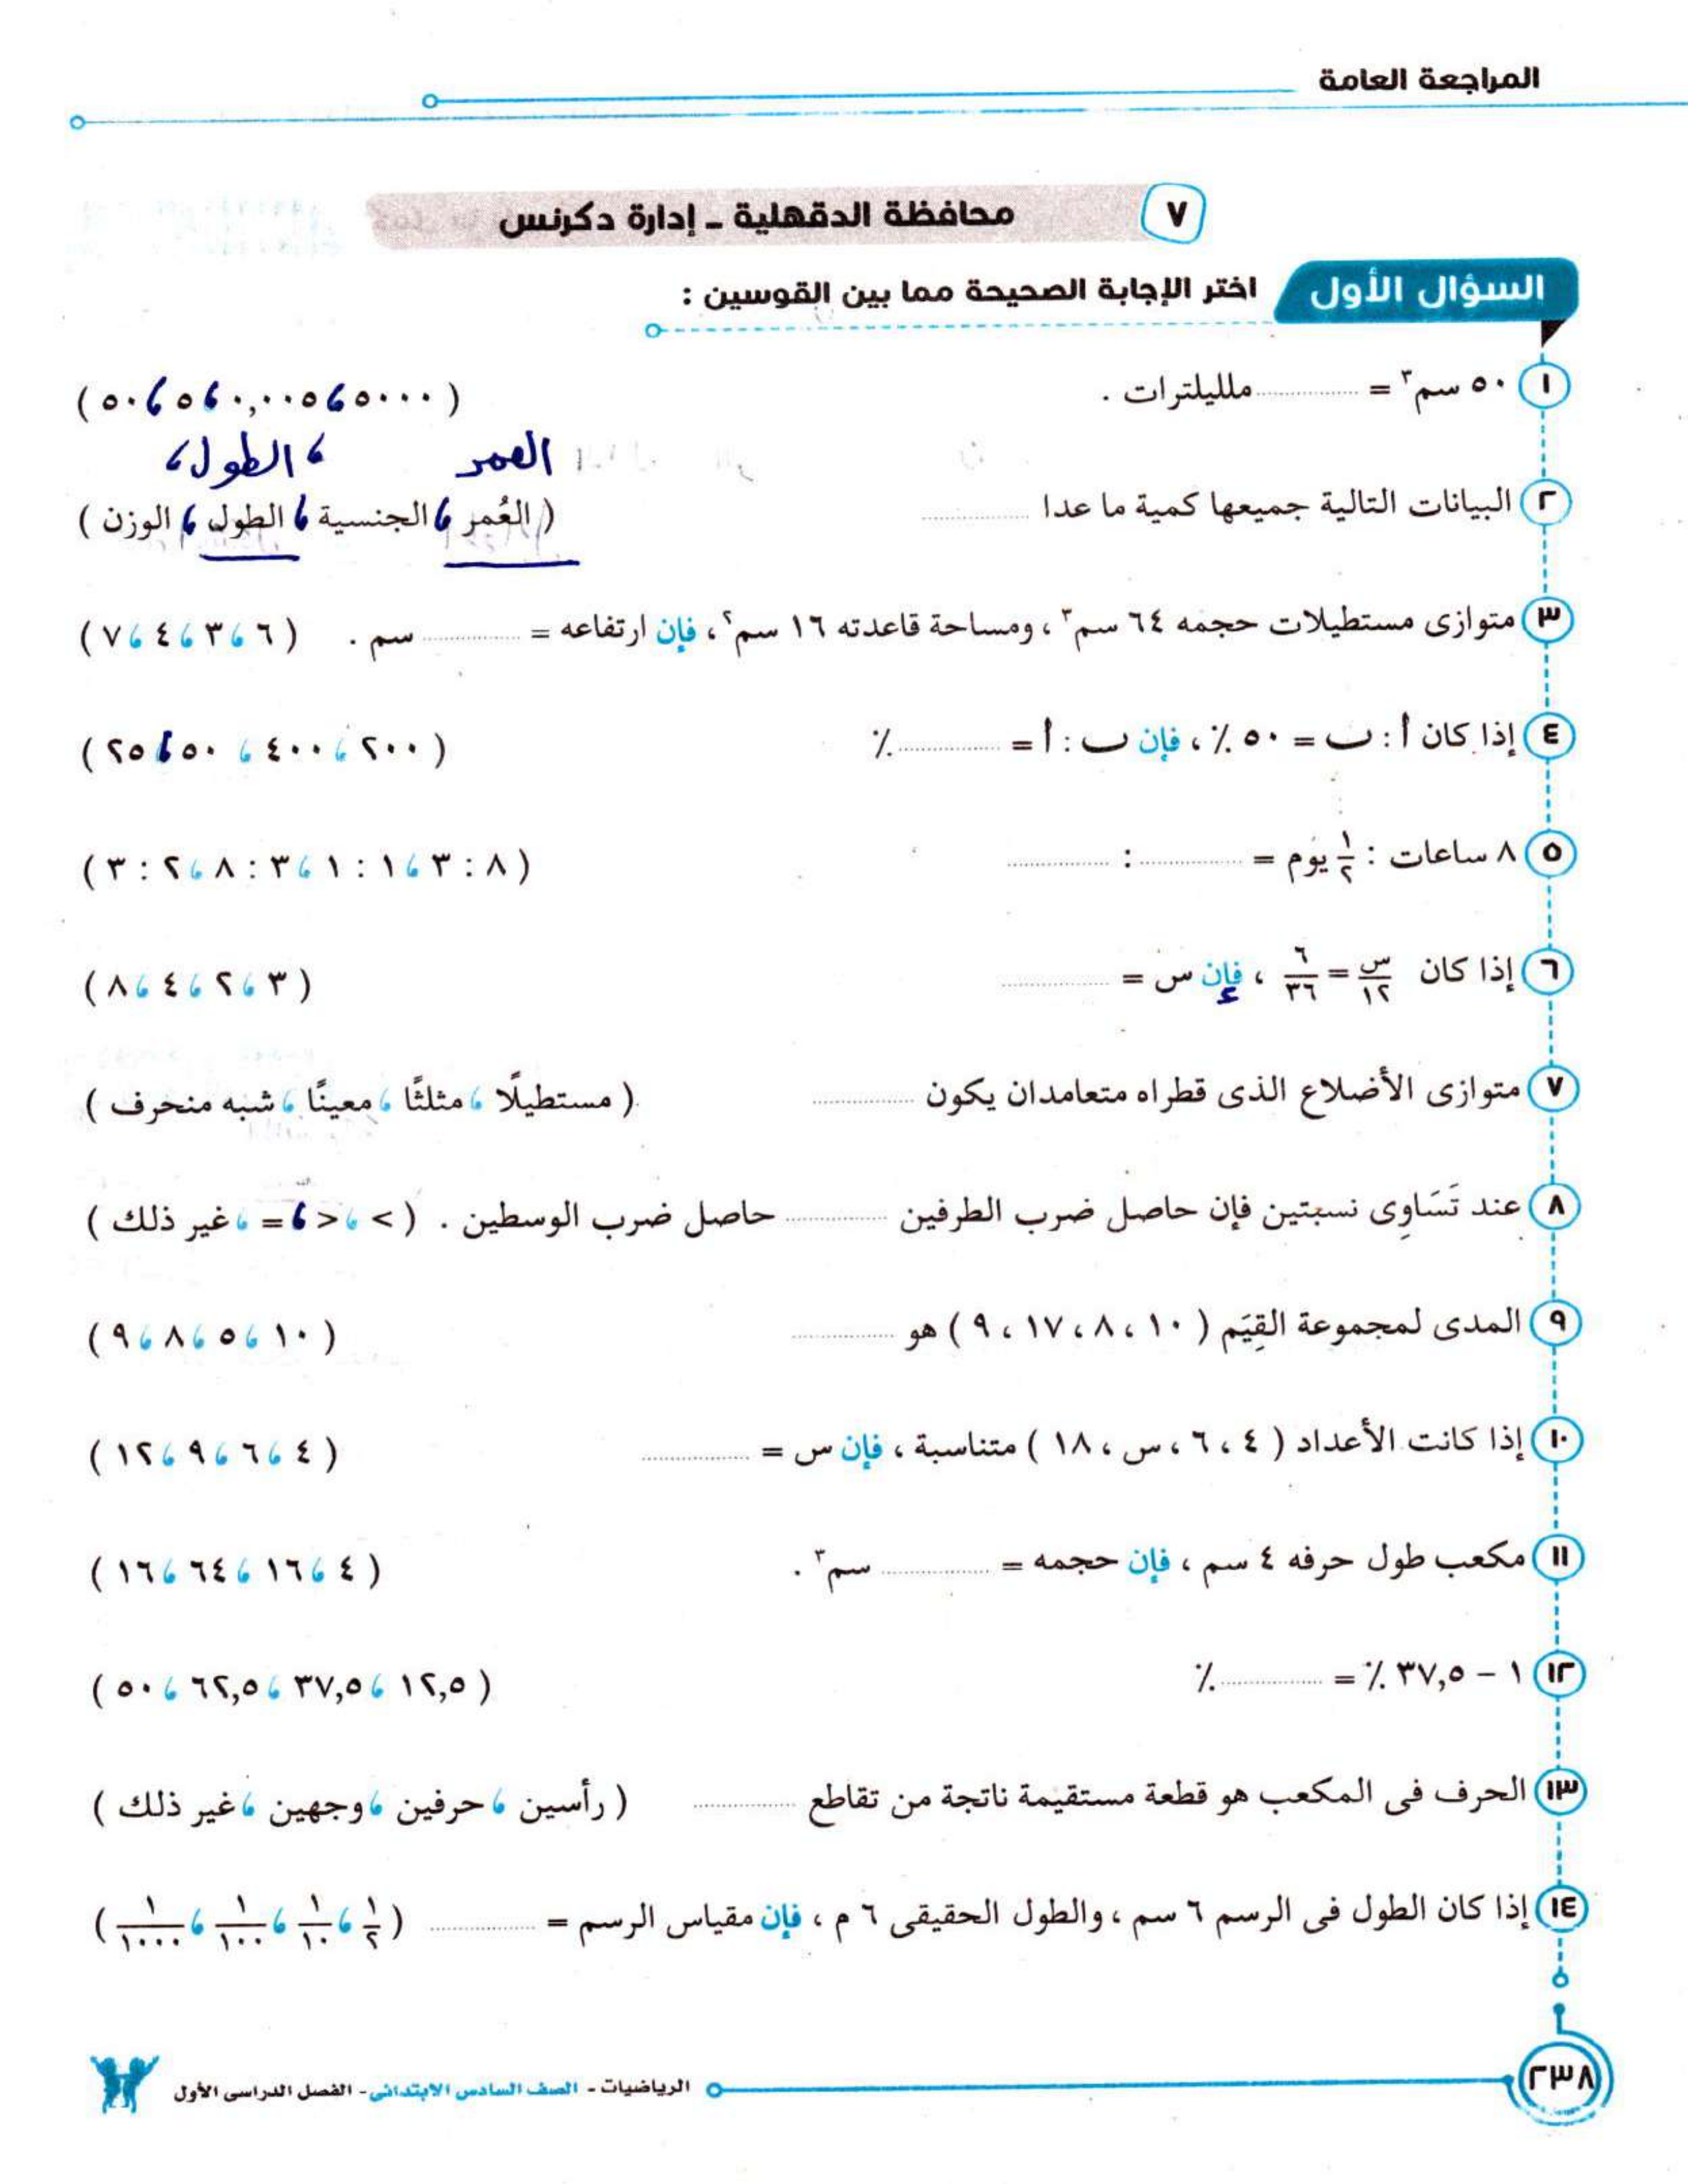 المراجعة العامة
٧ محافظة الدقهلية - إدارة دكرنس
السؤال الأول اختر الإجابة الصحيحة مما بين القوسين :
١ ٥٠ سم٣ = .......... ملليلترات . ( ٥٠٠٠ ، ٠,٠٠٥ ، ٥ ، ٥٠ )
العمر ، الطول ،
٢ البيانات التالية جميعها كمية ما عدا .......... ( العُمر ، الجنسية ، الطول ، الوزن )
٣ متوازى مستطيلات حجمه ٦٤ سم٣ ، ومساحة قاعدته ١٦ سم٢ ، فإن ارتفاعه = .......... سم . ( ٦ ، ٣ ، ٤ ، ٧ )
٤ إذا كان أ : ب = ٥٠ ٪ ، فإن ب : أ = .......... ٪ ( ٢٠٠ ، ٤٠٠ ، ٥٠ ، ٢٥ )
٥ ٨ ساعات : ١/٢ يوم = .......... : .......... ( ٨ : ٣ ، ١ : ١ ، ٣ : ٨ ، ٢ : ٣ )
٦ إذا كان س/١٢ = ٦/٣٦ ، فإن س = .......... ( ٣ ، ٢ ، ٤ ، ٨ )
٧ متوازى الأضلاع الذى قطراه متعامدان يكون .......... ( مستطيلًا ، مثلثًا ، معينًا ، شبه منحرف )
٨ عند تَسَاوِى نسبتين فإن حاصل ضرب الطرفين .......... حاصل ضرب الوسطين . ( > ، < ، = ، غير ذلك )
٩ المدى لمجموعة القِيَم ( ١٠ ، ٨ ، ١٧ ، ٩ ) هو .......... ( ١٠ ، ٥ ، ٨ ، ٩ )
١٠ إذا كانت الأعداد ( ٤ ، ٦ ، س ، ١٨ ) متناسبة ، فإن س = .......... ( ٤ ، ٦ ، ٩ ، ١٢ )
١١ مكعب طول حرفه ٤ سم ، فإن حجمه = .......... سم٣ . ( ٤ ، ١٦ ، ٦٤ ، ١٦ )
١٢ ١ - ٣٧,٥ ٪ = .......... ٪ ( ١٢,٥ ، ٣٧,٥ ، ٦٢,٥ ، ٥٠ )
١٣ الحرف فى المكعب هو قطعة مستقيمة ناتجة من تقاطع .......... ( رأسين ، حرفين ، وجهين ، غير ذلك )
١٤ إذا كان الطول فى الرسم ٦ سم ، والطول الحقيقى ٦ م ، فإن مقياس الرسم = .......... ( ١/٢ ، ١/١٠ ، ١/١٠٠ ، ١/١٠٠٠ )
٢٣٨ الرياضيات - الصف السادس الابتدائى - الفصل الدراسى الأول